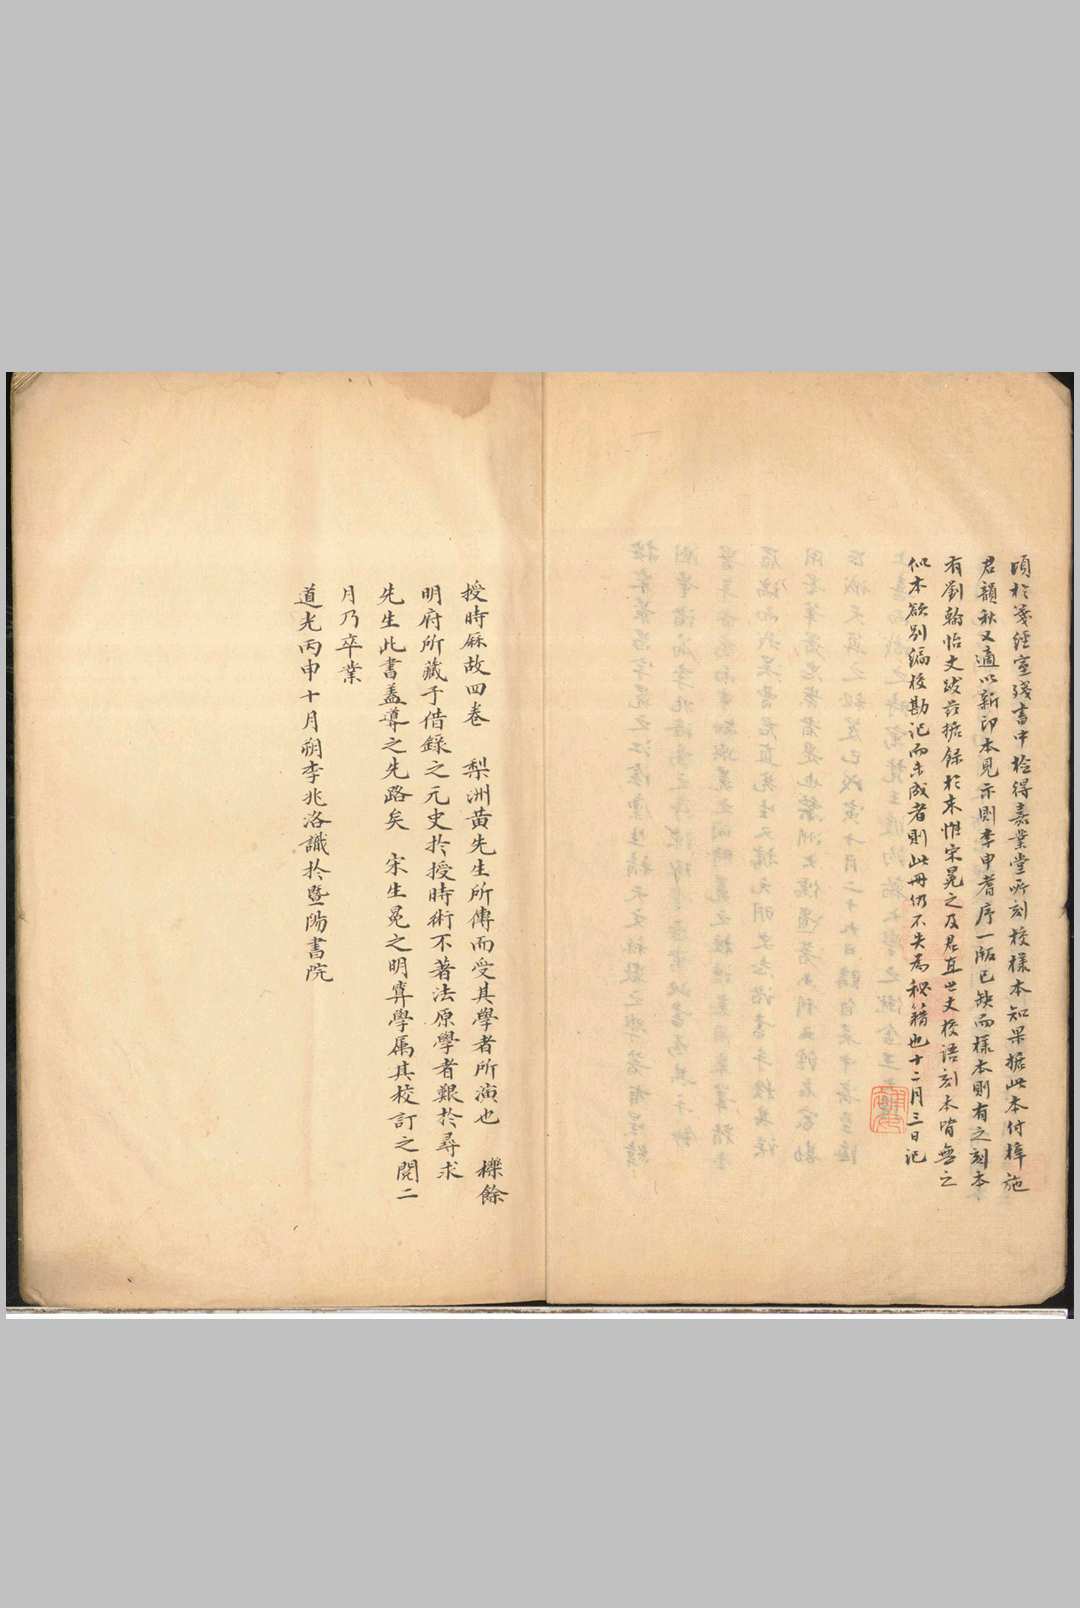 頃於箋經室殘書中撿得嘉業堂所刻校樣本知果據此本付梓施
君韻秋又適以新印本見示則李申耆序一版已缺而樣本則有之刻本
有劉翰怡丈跋茲據錄於末惟宋冕之及君直世丈校語刻本皆無之
似本欲別編校勘記而未成者則此冊仍不失為秘籍也十二月三日記
授時厤故四卷 梨洲黄先生所傳而受其學者所演也 櫟餘
明府所藏予借錄之元史於授時術不著法原學者艱於尋求
先生此書盖導之先路矣 宋生冕之明筭學属其校訂之閱二
月乃卒業
道光丙申十月朔李兆洛識於暨陽書院